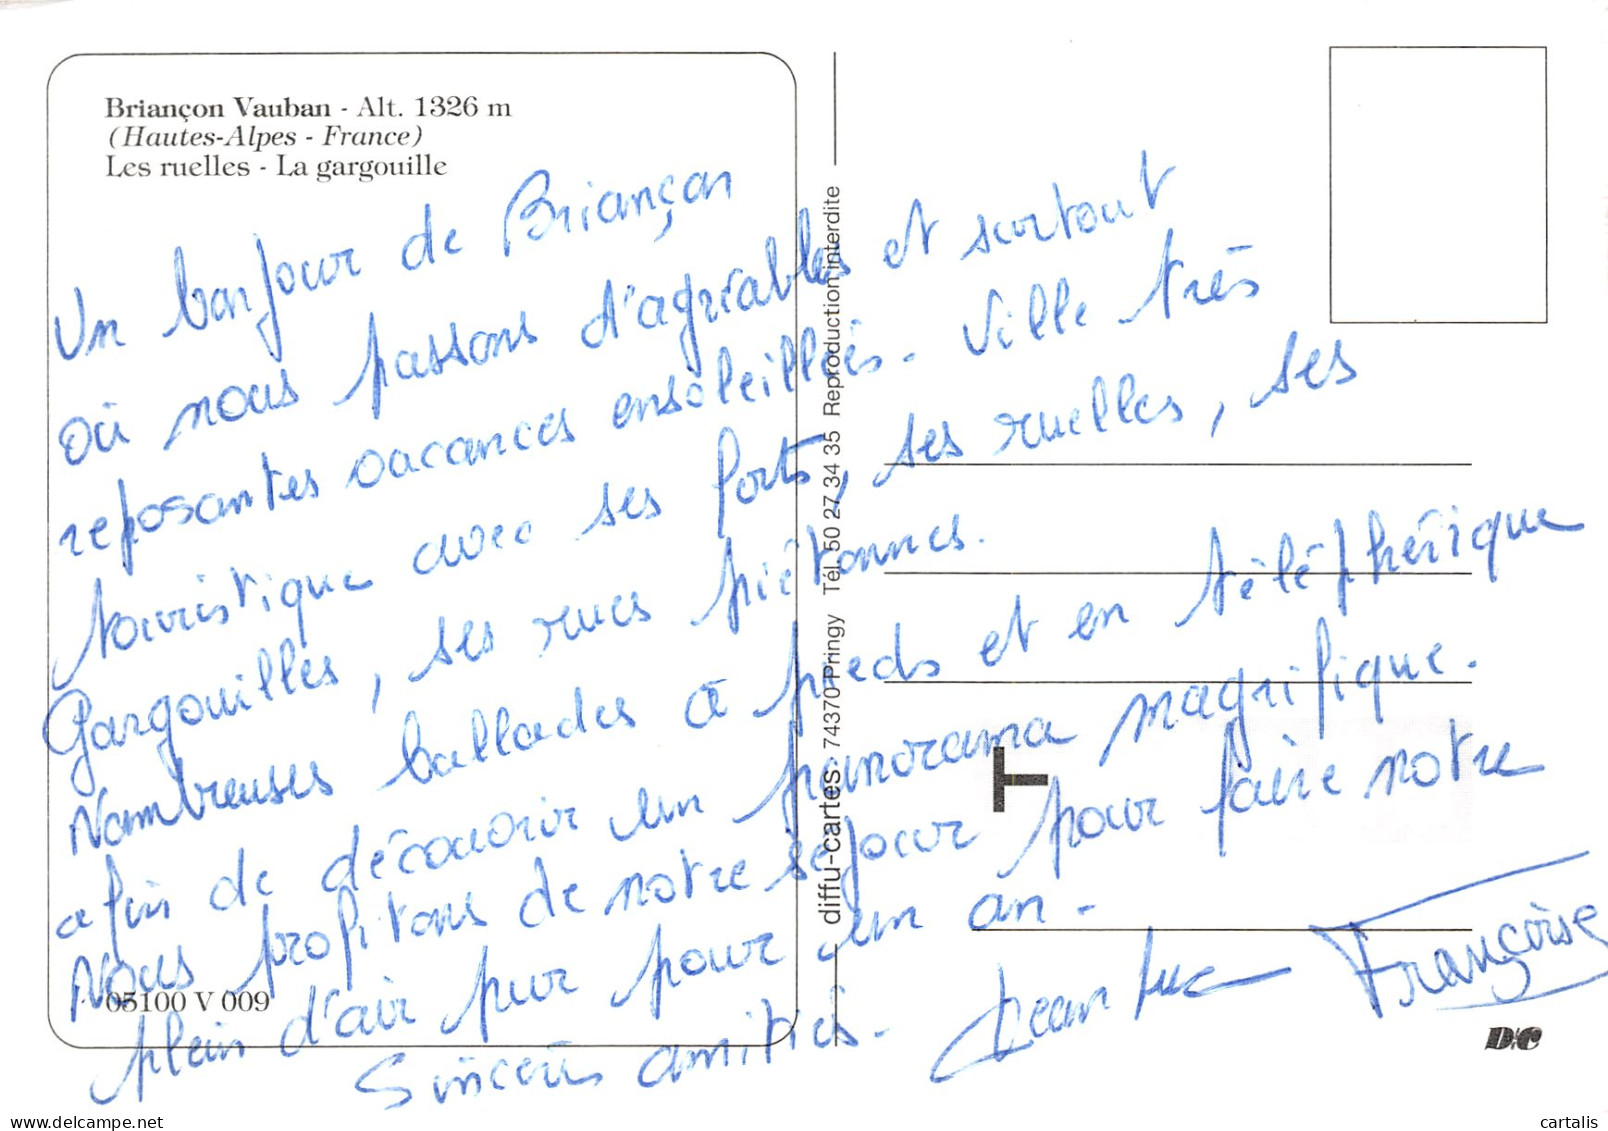 Briançon Vauban - Alt. 1326 m
(Hautes-Alpes - France)
Les ruelles - La gargouille
Un bonjour de Briançon
où nous passons d'agréables et surtout
reposantes vacances ensoleillées. Ville très
touristique avec ses forts, ses ruelles, ses
Gargouilles, ses rues piétonnes.
Nombreuses ballades à pieds et en téléphérique
afin de découvrir un panorama magnifique.
Nous profitons de notre séjour pour faire notre
plein d'air pur pour un an.
Sincères amitiés.
Jean Luc
Françoise
05100 V 009
diffu-cartes 74370 Pringy Tél. 50 27 34 35 Reproduction interdite
T
D/C
delcampe.net
cartalis